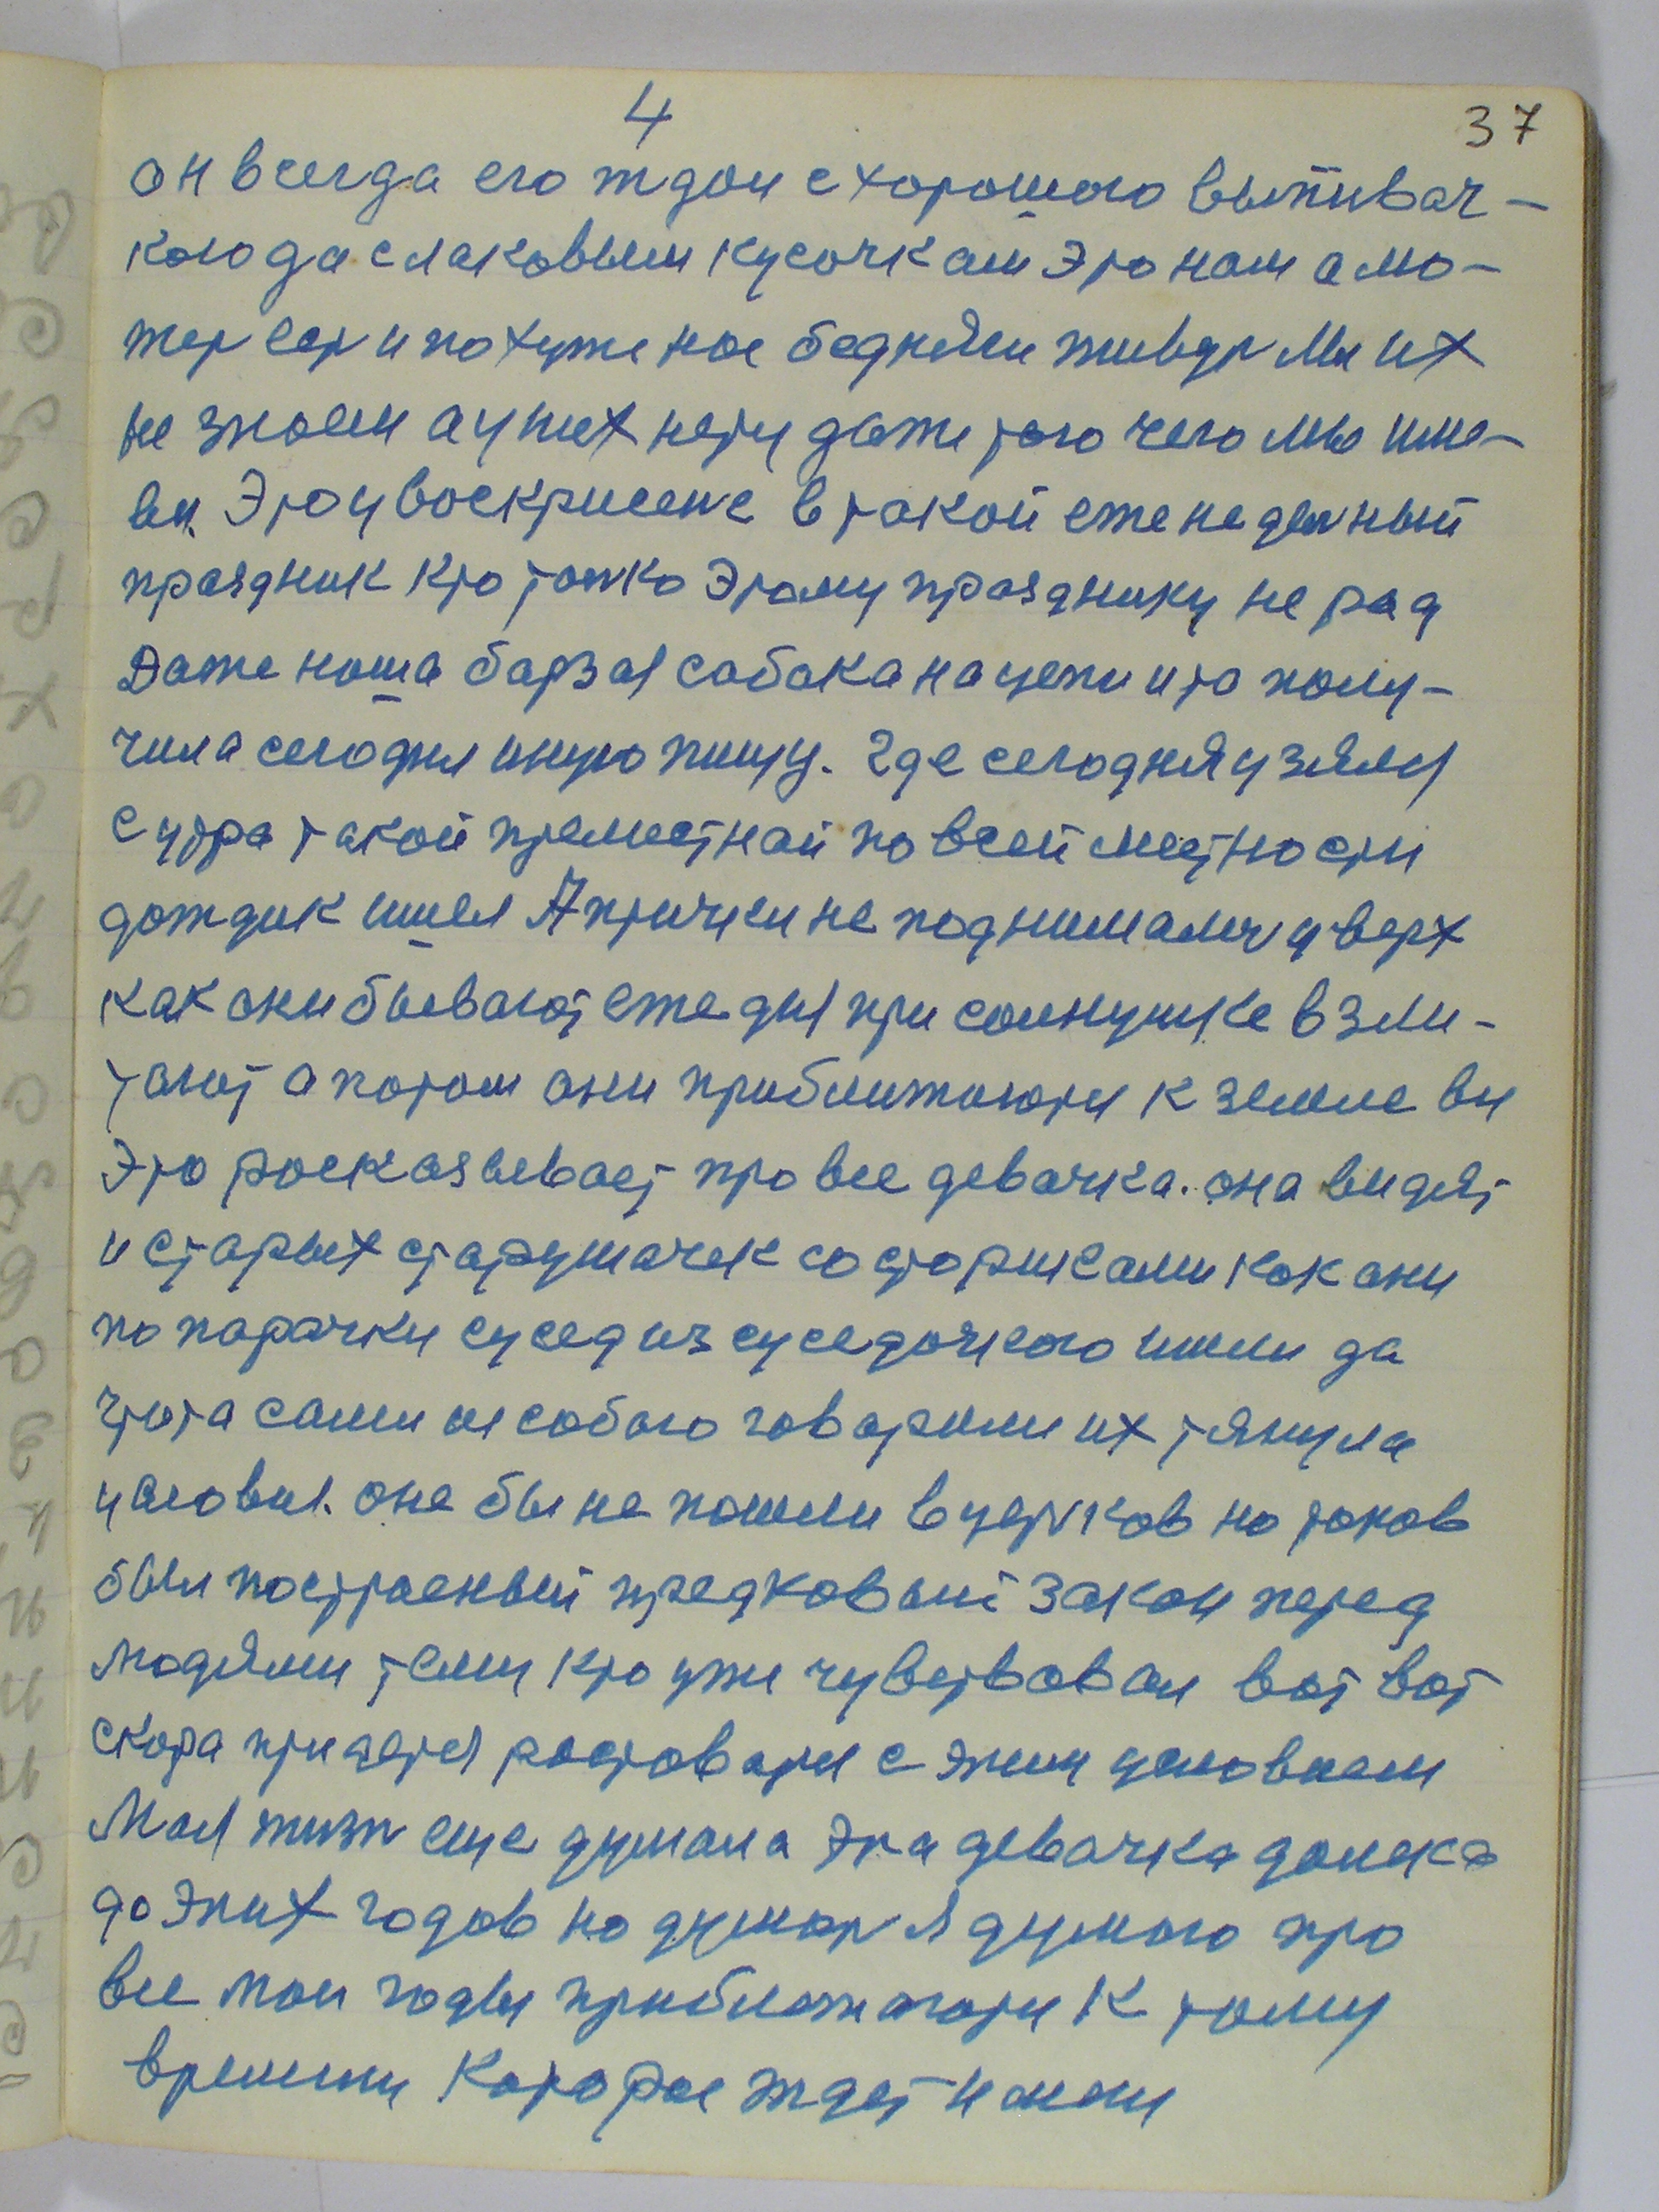 4
37
он всегда его ждом с хорошою выпивач-
кою да с лаковым кусочкам Это нам а мо-
жеть есть и похуже нас бедняки живуть Мы их
не знаем а у них нету даже того чего мы име-
ем. Это у воскрисене в такой еженеделный
праздник кто толко Этому празднику не рад
Даже наша барзая собака на цепи и то полу-
чила сегодня иную пищу. Где сегодня узялся
с утра такой преместнай по всей местности
дождик ишел А птички не поднимались уверх
как они бывают ежедня при солнушке взли-
тают а потом они приближаютси к земле вси
Это расказывает про все девачка. она видят
и старых старушачек со старикami как они
по парачки сусед из суседачкою ишли да
чтота сами из собою говарили их тянула
условия. оне бы не пошли в церков но таков
был построеный предковый закон перед
людями тему кто уже чувствовал вот вот
скора придется растоватся с этим условием
Мая жизн еще думала эта девачка далека
до этих годов но думать я думаю про
все маи годы приближаютси к тому
времени Которое ждет и мени